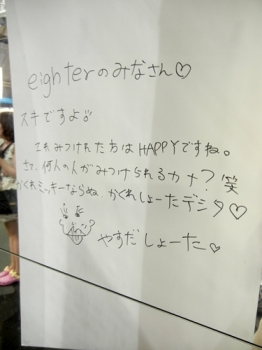 eighterのみなさん♡
スキですよ
これみつけれた方はHAPPYですね。
さて、何人の人がみつけられるカナ?笑
かくれミッキーならぬ、かくれしょーたデシタ♡
やすだしょーた♡